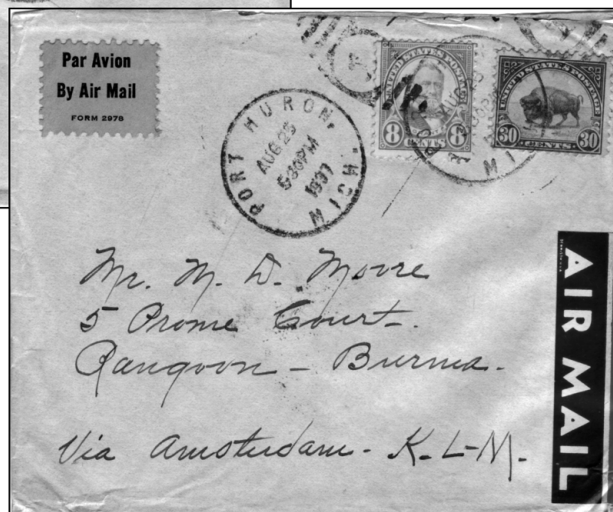 Par Avion
By Air Mail
FORM 2978
PORT HURON, MICH.
AUG 25
530PM
1937
UNITED STATES POSTAGE
8 CENTS 8
UNITED STATES POSTAGE
30 CENTS 30
Mr. M. D. Moore
5 Prome Court.
Rangoon - Burma.
Via Amsterdam - K-L-M.
AIR MAIL